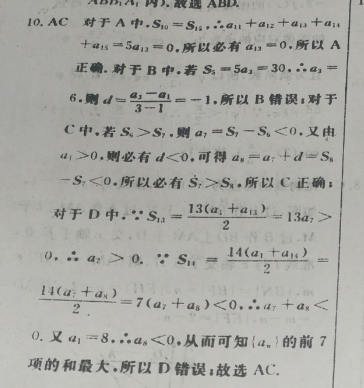 内).故选 ABD.
10. AC 对于 A 中,S₁₀=S₁₅,∴a₁₁+a₁₂+a₁₃+a₁₄
+a₁₅=5a₁₃=0,所以必有 a₁₃=0,所以 A
正确.对于 B 中,若 S₅=5a₃=30,∴a₃=
6,则 d=\frac{a₃-a₁}{3-1}=-1,所以 B 错误;对于
C 中,若 S₆>S₇,则 a₇=S₇-S₆<0,又由
a₁>0,则必有 d<0,可得 a₈=a₇+d=S₈
-S₇<0,所以必有 S₇>S₈,所以 C 正确;
对于 D 中,∵S₁₃=\frac{13(a₁+a₁₃)}{2}=13a₇>
0,∴ a₇>0, ∵ S₁₄=\frac{14(a₁+a₁₄)}{2}=
\frac{14(a₇+a₈)}{2}=7(a₇+a₈)<0,∴a₇+a₈<
0.又 a₁=8,∴a₈<0,从而可知{aₙ}的前 7
项的和最大,所以 D 错误;故选 AC.